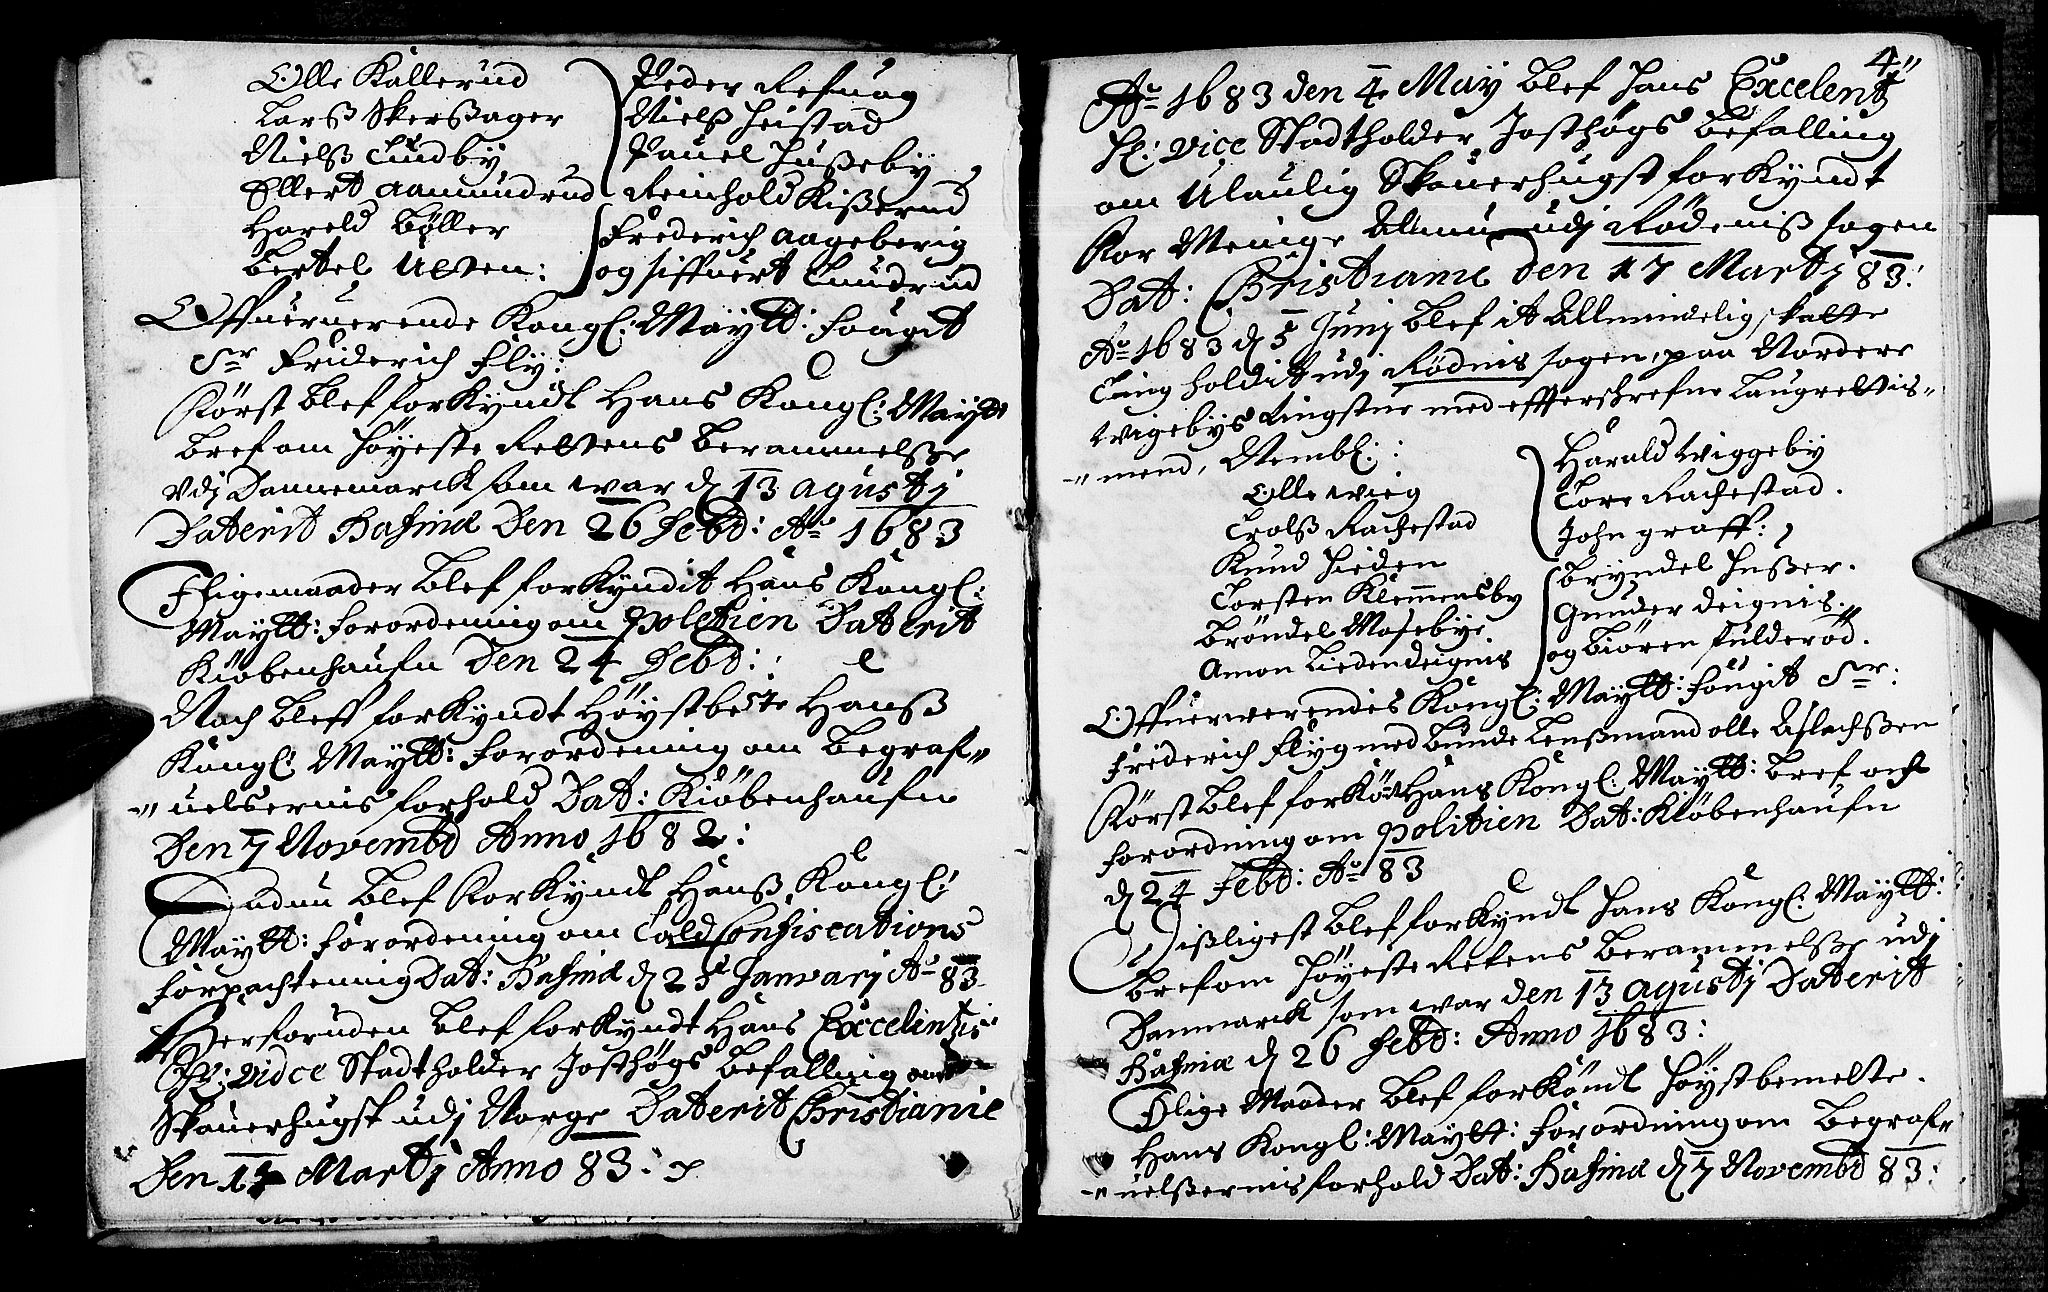 Olle Kallerud
Larß Skerßager
Nielß Tudby
Ellert Aamundrud
Hareld Böller
Bertel Ulsen:
Peder Refuog
Nielß Heistad
Pauel Hußeby,
Reinhold Kißerud
Friderich Aageberig
og Siffuert Tundrud
Offueruerende Kongl: Maytt: fougit
Sr Friderich Fly:
Först blef forkyndt Hans Kongl: Maytt
bref om höyeste Rettens berammelße
Vdj Dannemarck som war d 13 agustj
Daterit Hafniæ Den 26 Febr: Ao 1683
Ehligemaader blef forkyndit Hans Kongl:
Maytt: forordening om poletien Daterit
Kiöbenhaufn Den 24 Febr:
Noch bleff forkyndt Höystbete Hanß
Kongl: Maytt: forordening om Begraf„
-„ uelsernis forhold Dat: Kiöbenhaufn
Den 7 Novembr Anno 1682:
Endnu blef Forkyndt Hanß Kongl:
Maytt: forordening om Told Confiscations
forpachtening Dat: Hafniæ d 25 Janvarj Ao 83
Herforuden blef forkyndt Hans Excelintzis
Hr: vidce Stadtholder Josthögs befalling om
Skouerhugst udj Norge Daterit Christianiæ
Den 17 Martj Anno 83:
4„
Ao 1683 den 4 May blef Hans Excelentz
Hr: vice Stadtholder Josthögs befalling
om Ulaulig Skouerhugst forkyndt
For Menige Almue udj Rödeniß sogen
Dat: Christianiæ den 17 Martj 83:
Ao 1683 d 5 Junj blef it Allmindelig skatte
Ting holdit udj Rödnis sogen, paa Nordere
Wigebys tingstue med efftershrefne Laugrettis„
-„ mend, Nembl:
Olle Wieg
Trolß Rachestad
Knud Hieden
Torsten Klemmensby
Bröndel Mosebye
Amon Liedendeignis
Harald Wiggeby
Tore Rachestad.
John graff:
Bryndel Hußer.
Gunder deignis.
og Biören fulderöd.
Offueruerendis Kongl: Maytt: fougit Sr:
Friderich Flyg med bunde Lenßmand olle Aslachßen
Först blef forkönt Hans Kongl: Maytt: bref och
forordning om politien Dat: Kiöbenhaufn
d 24 Febr: Ao 83
Dißligest blef forkyndt Hans Kongl: Maytt:
bref om höyeste Retens berammelße udj
Danmarck som war den 13 agustj Daterit
Hafniæ d 26 Febr: Anno 1683:
Elige Maader blef forköndt höystbemelte
Hans Kongl: Maytt: forordning om begraf„
-„ uelßernis forhold Dat: Hafniæ d 7 Novembr 83: